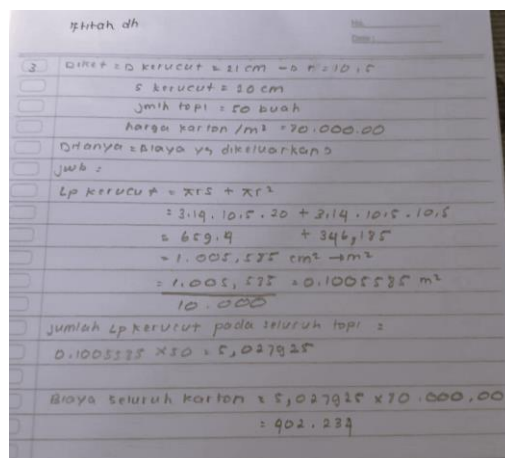 No.
Date :
3 Diket = D kerucut = 21 cm → r = 10,5
S kerucut = 20 cm
jmlh topi = 50 buah
harga karton /m² = 80.000.00
Ditanya = Biaya yg dikeluarkan?
jwb :
Lp kerucut = πrs + πr²
= 3.14 . 10,5 . 20 + 3,14 . 10,5 . 10,5
= 659.4 + 346,185
= 1.005,585 cm² → m²
= 1.005,585 = 0.1005585 m²
10.000
jumlah Lp kerucut pada seluruh topi =
0.1005585 x 50 = 5,027925
Biaya seluruh karton = 5,027925 x 80.000,00
= 402.234